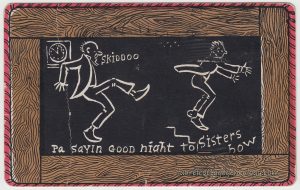 Skidooo
Pa sayin Good night to Sisters
bow